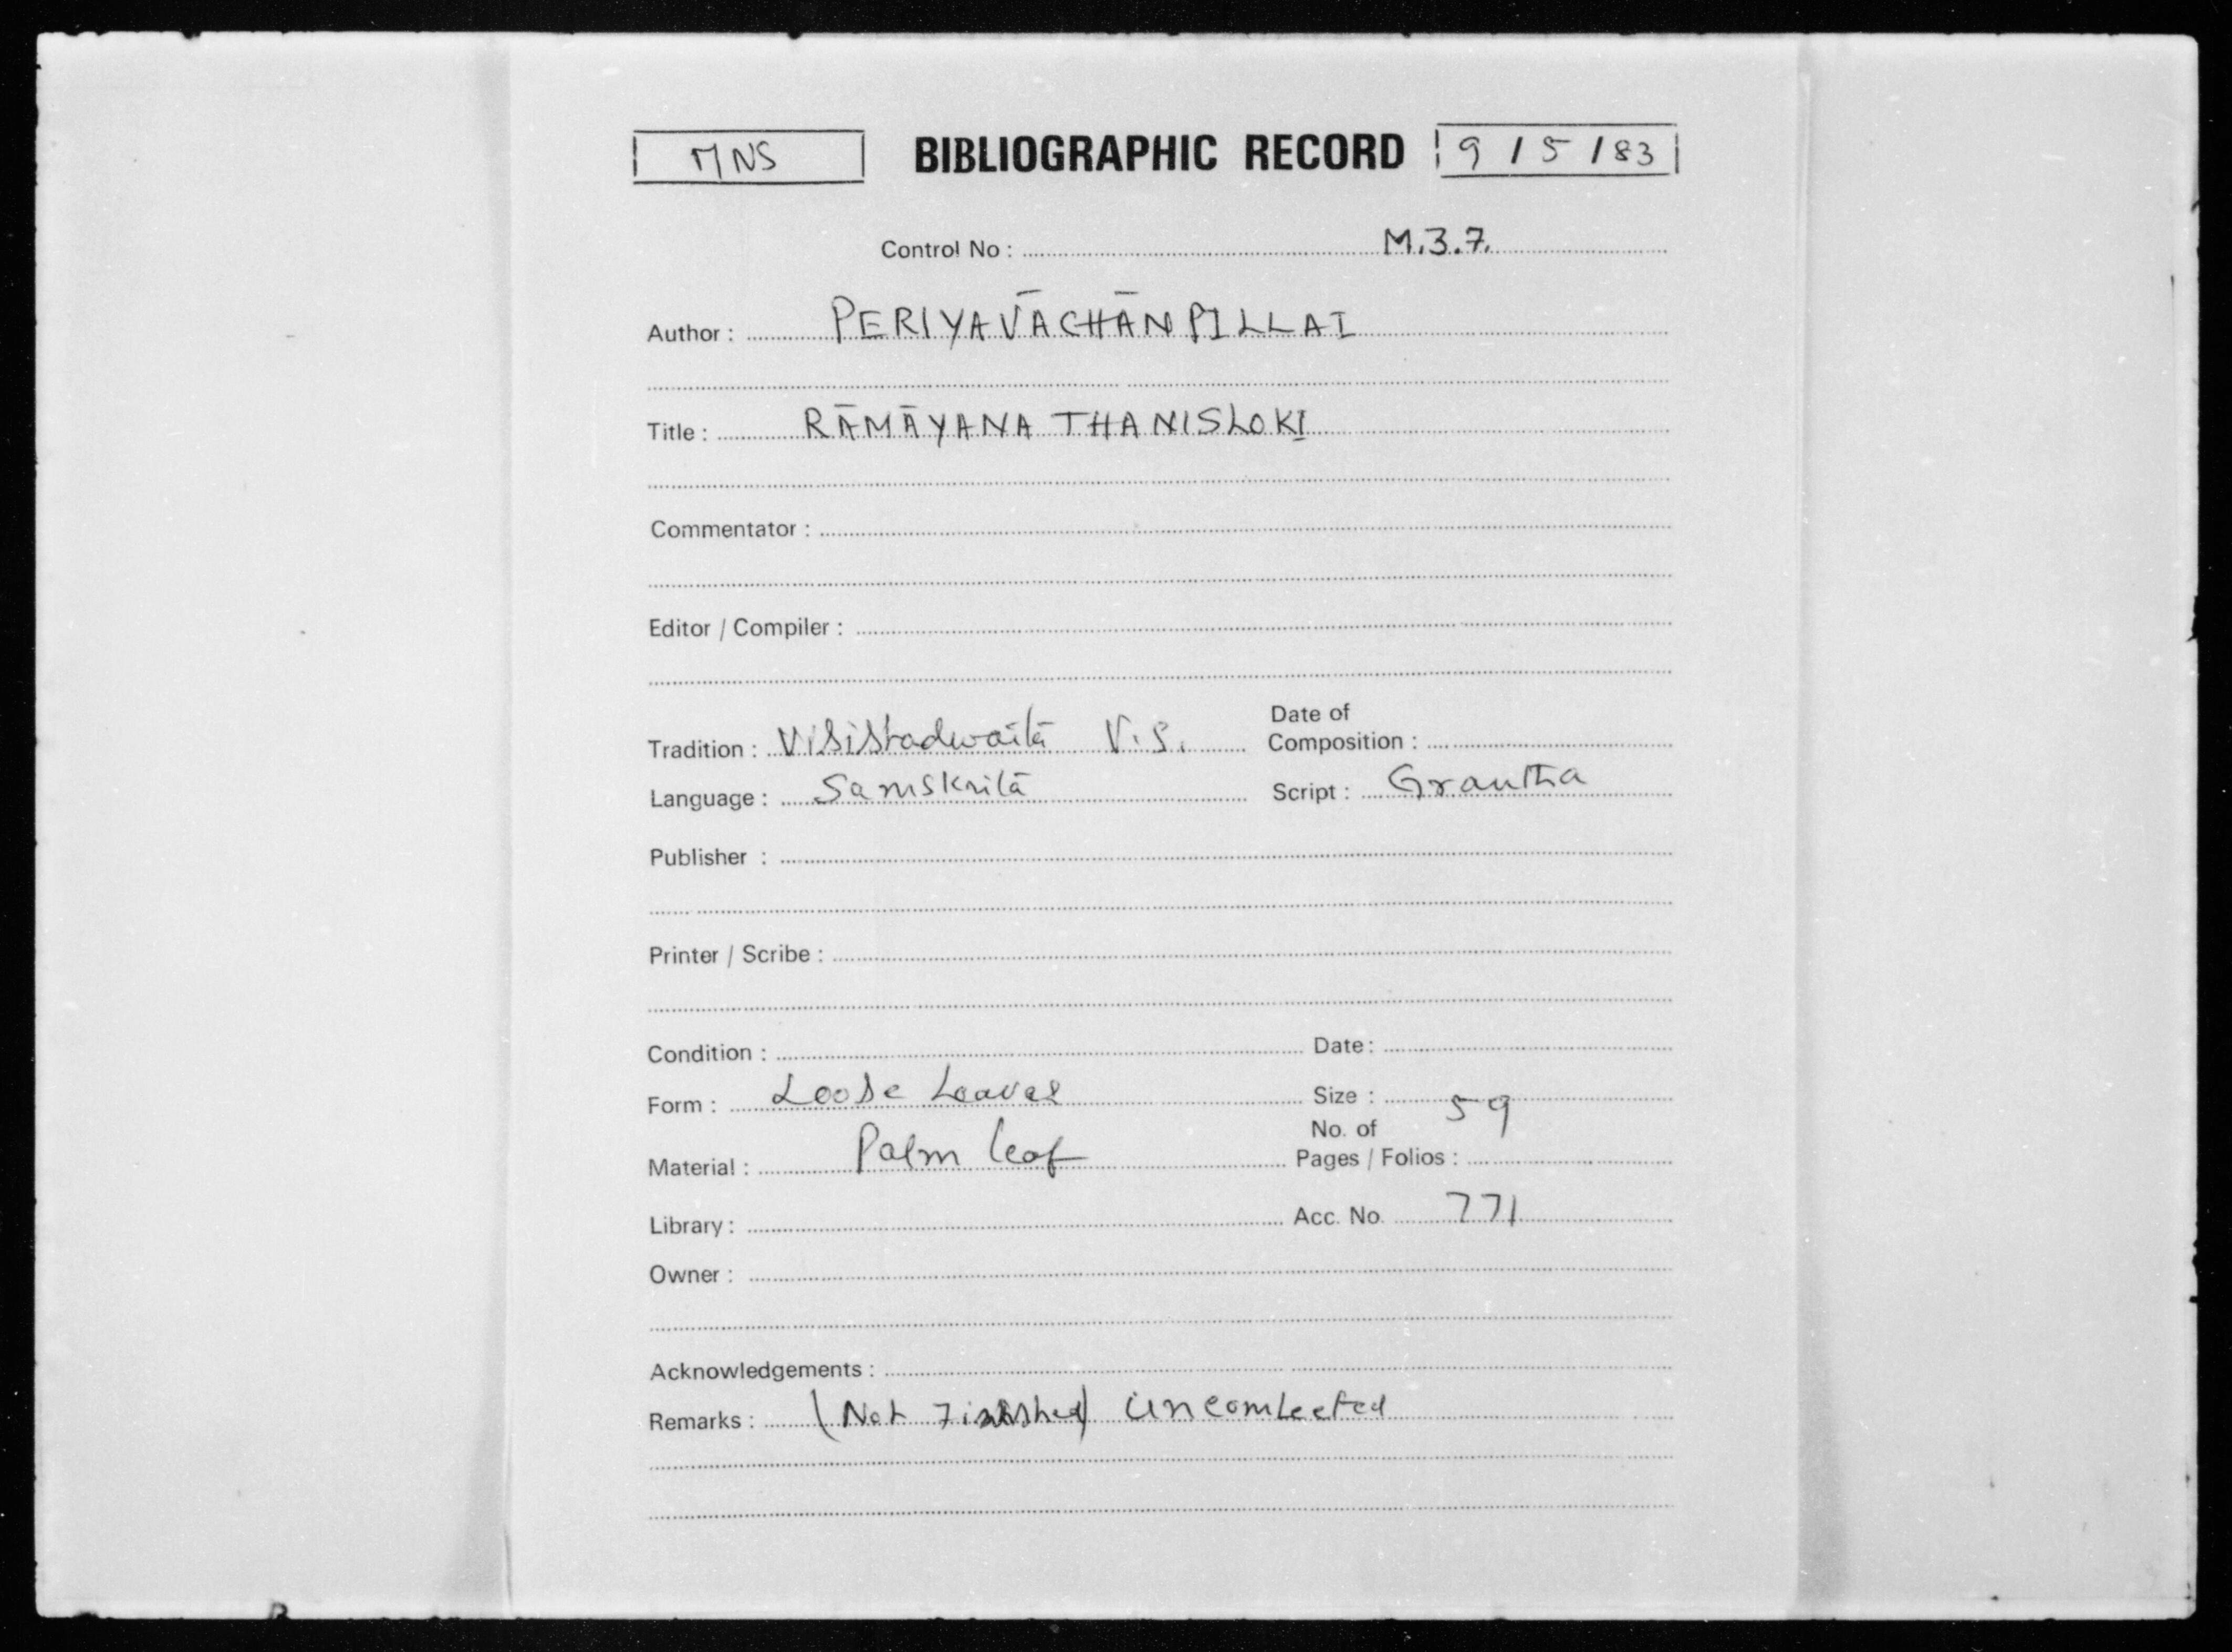 MNS BIBLIOGRAPHIC RECORD 9/5/83
Control No : M.3.7.
Author : PERIYAVĀCHĀNPILLAI
Title : RĀMĀYANA THANISLOKI
Commentator :
Editor / Compiler :
Tradition : Visistadwaitā V.S. Date of Composition :
Language : Samskritā Script : Grantha
Publisher :
Printer / Scribe :
Condition : Date :
Form : Loose Leaves Size :
Material : Palm leaf No. of Pages / Folios : 59
Library : Acc. No. 771
Owner :
Acknowledgements :
Remarks : (Not Finished) uncomleeted